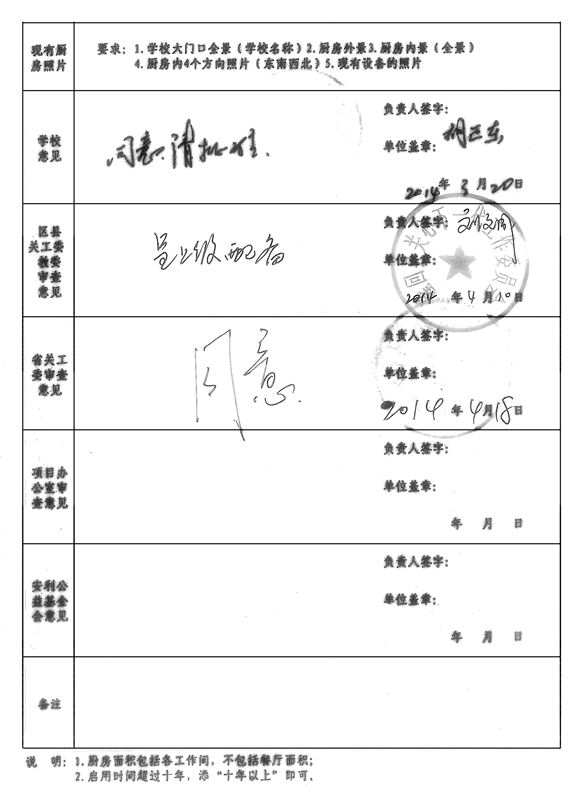 现有厨
房照片
要求：1.学校大门口全景（学校名称）2.厨房外景3.厨房内景（全景）
4.厨房内4个方向照片（东南西北）5.现有设备的照片
学校
意见
同意.请批准.
负责人签字：
单位盖章：
2014年 3月20日
区县
关工委
教委
审查
意见
呈上级配备
负责人签字：
单位盖章：
2014 年4月10日
省关工
委审查
意见
同意.
负责人签字：
单位盖章：
2014年4月18日
项目办
公室审
查意见
负责人签字：
单位盖章：
年 月 日
安利公
益基金
会意见
负责人签字：
单位盖章：
年 月 日
备注
说 明：1.厨房面积包括各工作间，不包括餐厅面积；
2.启用时间超过十年，添“十年以上”即可。